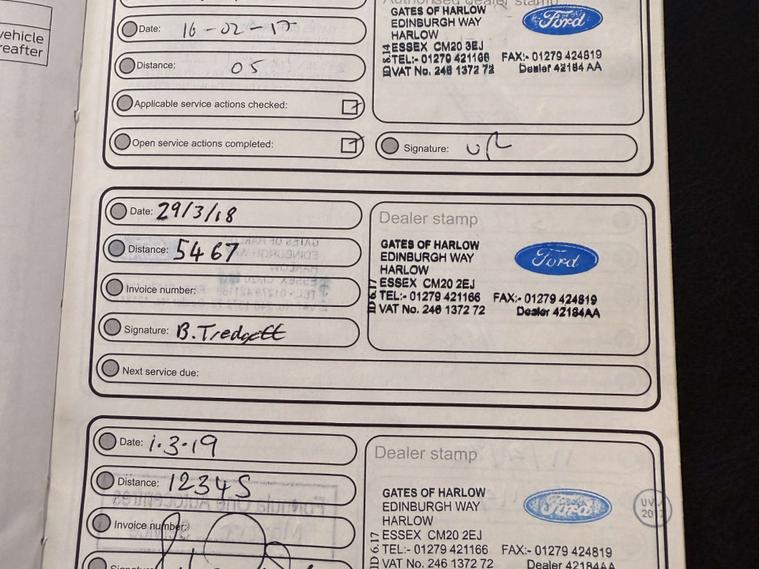 vehicle
reafter
Authorised dealer stamp
GATES OF HARLOW
EDINBURGH WAY
HARLOW
ESSEX CM20 3EJ
TEL:- 01279 421166 FAX:- 01279 424819
VAT No. 246 1372 72 Dealer 42184 AA
Ford
Date: 16-02-17
Distance: 05
Applicable service actions checked:
Open service actions completed:
Signature:
Date: 29/3/18
Distance: 5467
Invoice number:
Signature: B.Tredgett
Next service due:
Dealer stamp
GATES OF HARLOW
EDINBURGH WAY
HARLOW
ESSEX CM20 2EJ
TEL:- 01279 421166 FAX:- 01279 424819
VAT No. 246 1372 72 Dealer 42184AA
ID 6.17
Ford
Date: 1.3.19
Distance: 12345
Invoice number:
Signature:
Dealer stamp
GATES OF HARLOW
EDINBURGH WAY
HARLOW
ESSEX CM20 2EJ
TEL:- 01279 421166 FAX:- 01279 424819
VAT No. 246 1372 72 Dealer 42184AA
ID 6.17
Ford